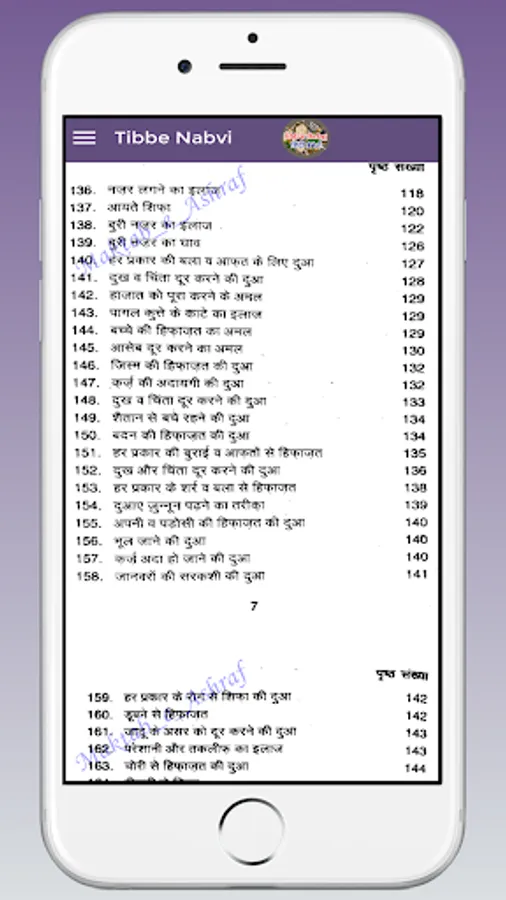 Tibbe Nabvi
पृष्ठ संख्या
136. नजर लगने का इलाज 118
137. आयते शिफा 120
138. बुरी नज़र का इलाज 122
139. बुरी नज़र का घाव 126
140. हर प्रकार की बला व आफ़त के लिए दुआ 127
141. दुख व चिंता दूर करने की दुआ 128
142. हाजात को पूरा करने के अमल 129
143. पागल कुत्ते के काटे का इलाज 129
144. बच्चे की हिफ़ाज़त का अमल 129
145. आसेब दूर करने का अमल 130
146. जिस्म की हिफ़ाज़त की दुआ 132
147. कर्ज़ की अदायगी की दुआ 132
148. दुख व चिंता दूर करने की दुआ 133
149. शैतान से बचे रहने की दुआ 134
150. बदन की हिफ़ाज़त की दुआ 134
151. हर प्रकार की बुराई व आफ़तों से हिफ़ाज़त 135
152. दुख और चिंता दूर करने की दुआ 136
153. हर प्रकार के शर्र व बला से हिफाज़त 138
154. दुआए ज़ुन्नून पढ़ने का तरीक़ा 139
155. अपनी व पड़ोसी की हिफ़ाज़त की दुआ 140
156. भूल जाने की दुआ 140
157. कर्ज़ अदा हो जाने की दुआ 140
158. जानवरों की सरकशी की दुआ 141
Maktab_e_Ashraf
7
पृष्ठ संख्या
159. हर प्रकार के रोग से शिफा की दुआ 142
160. डूबने से हिफाज़त 142
161. जादू के असर को दूर करने की दुआ 143
162. परेशानी और तकलीफ़ का इलाज 143
163. चोरी से हिफ़ाज़त की दुआ 144
Maktab_e_Ashraf